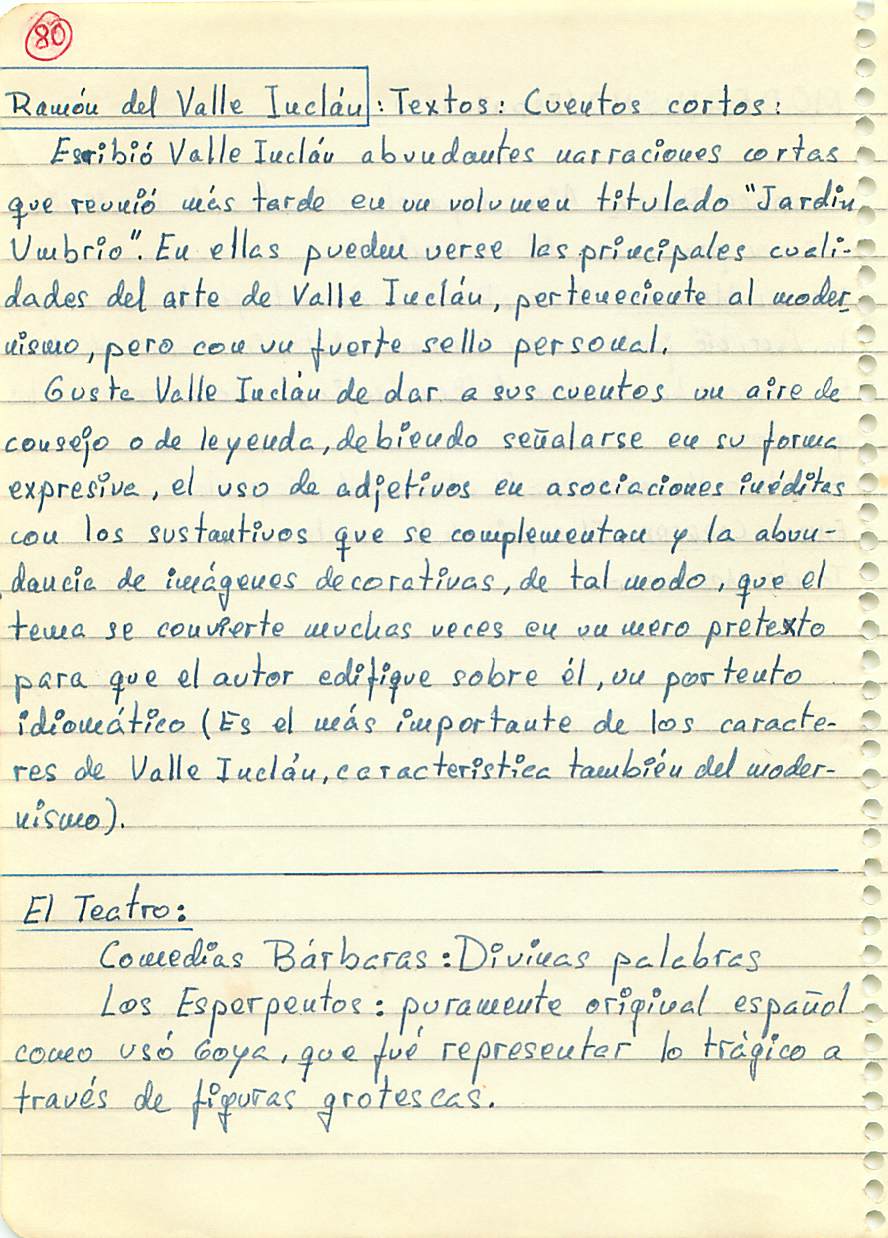 80
Ramón del Valle Inclán: Textos: Cuentos cortos:
Escribió Valle Inclán abundantes narraciones cortas
que reunió más tarde en un volumen titulado "Jardin
Umbrio". En ellas pueden verse las principales cuali-
dades del arte de Valle Inclán, perteneciente al moder_
nismo, pero con un fuerte sello personal.
Gusta Valle Inclán de dar a sus cuentos un aire de
consejo o de leyenda, debiendo señalarse en su forma
expresiva, el uso de adjetivos en asociaciones inéditas
con los sustantivos que se complementan y la abun-
dancia de imágenes decorativas, de tal modo, que el
tema se convierte muchas veces en un mero pretexto
para que el autor edifique sobre él, un portento
idiomático (Es el más importante de los caracte-
res de Valle Inclán, caracteristica también del moder-
nismo).
El Teatro:
Comedias Bárbaras: Divinas palabras
Los Esperpentos: puramente original español
como usó Goya, que fué representar lo trágico a
través de figuras grotescas.